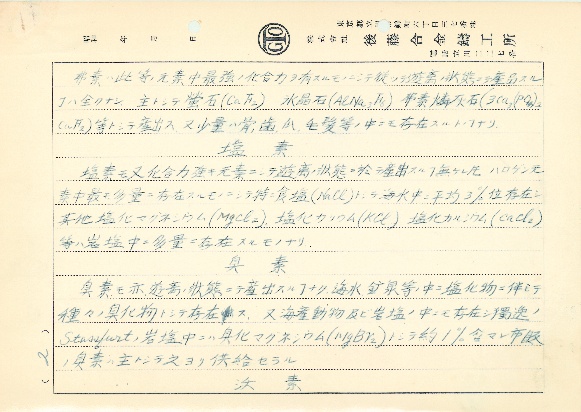 昭和 年 月 日
株式会社 後藤合金鋳工所
弗素ハ此等ノ元素中最強ノ化合力ヲ有スルモノニシテ従ツテ遊離ノ状態ニテ産出スル
コトハ全クナシ 主トシテ蛍石(CaF₂) 氷晶石(AlNa₃F₆) 弗素燐灰石(3Ca₃(PO₄)₂
CaF₂)等トシテ産出ス 又少量ハ骨、歯、血、毛髪等ノ中ニモ存在スルコトアリ
塩 素
塩素モ又化合力強キ元素ニシテ遊離ノ状態ニ於テ産出スルコト無ケレド ハロゲン元
素中最モ多量ニ存在スルモノニシテ特ニ食塩(NaCl)トシテ海水中ニ平均3%位存在シ
其他塩化マグネシウム(MgCl₂) 塩化カリウム(KCl) 塩化カルシウム(CaCl₂)
等ハ岩塩中ニ多量ニ存在スルモノナリ.
臭 素
臭素モ亦遊離ノ状態ニテ産出スルコトナク、海水鉱泉等ノ中ニ塩化物ニ伴ヒテ
種々ノ臭化物トシテ存在ス. 又海産動物及ビ岩塩ノ中ニモ存在シ獨逸ノ
Stassfurtノ岩塩中ニハ臭化マグネシウム(MgBr₂)トシテ約1%含マレ市販
ノ臭素ハ主トシテ之ヨリ供給セラル
沃 素
(2)